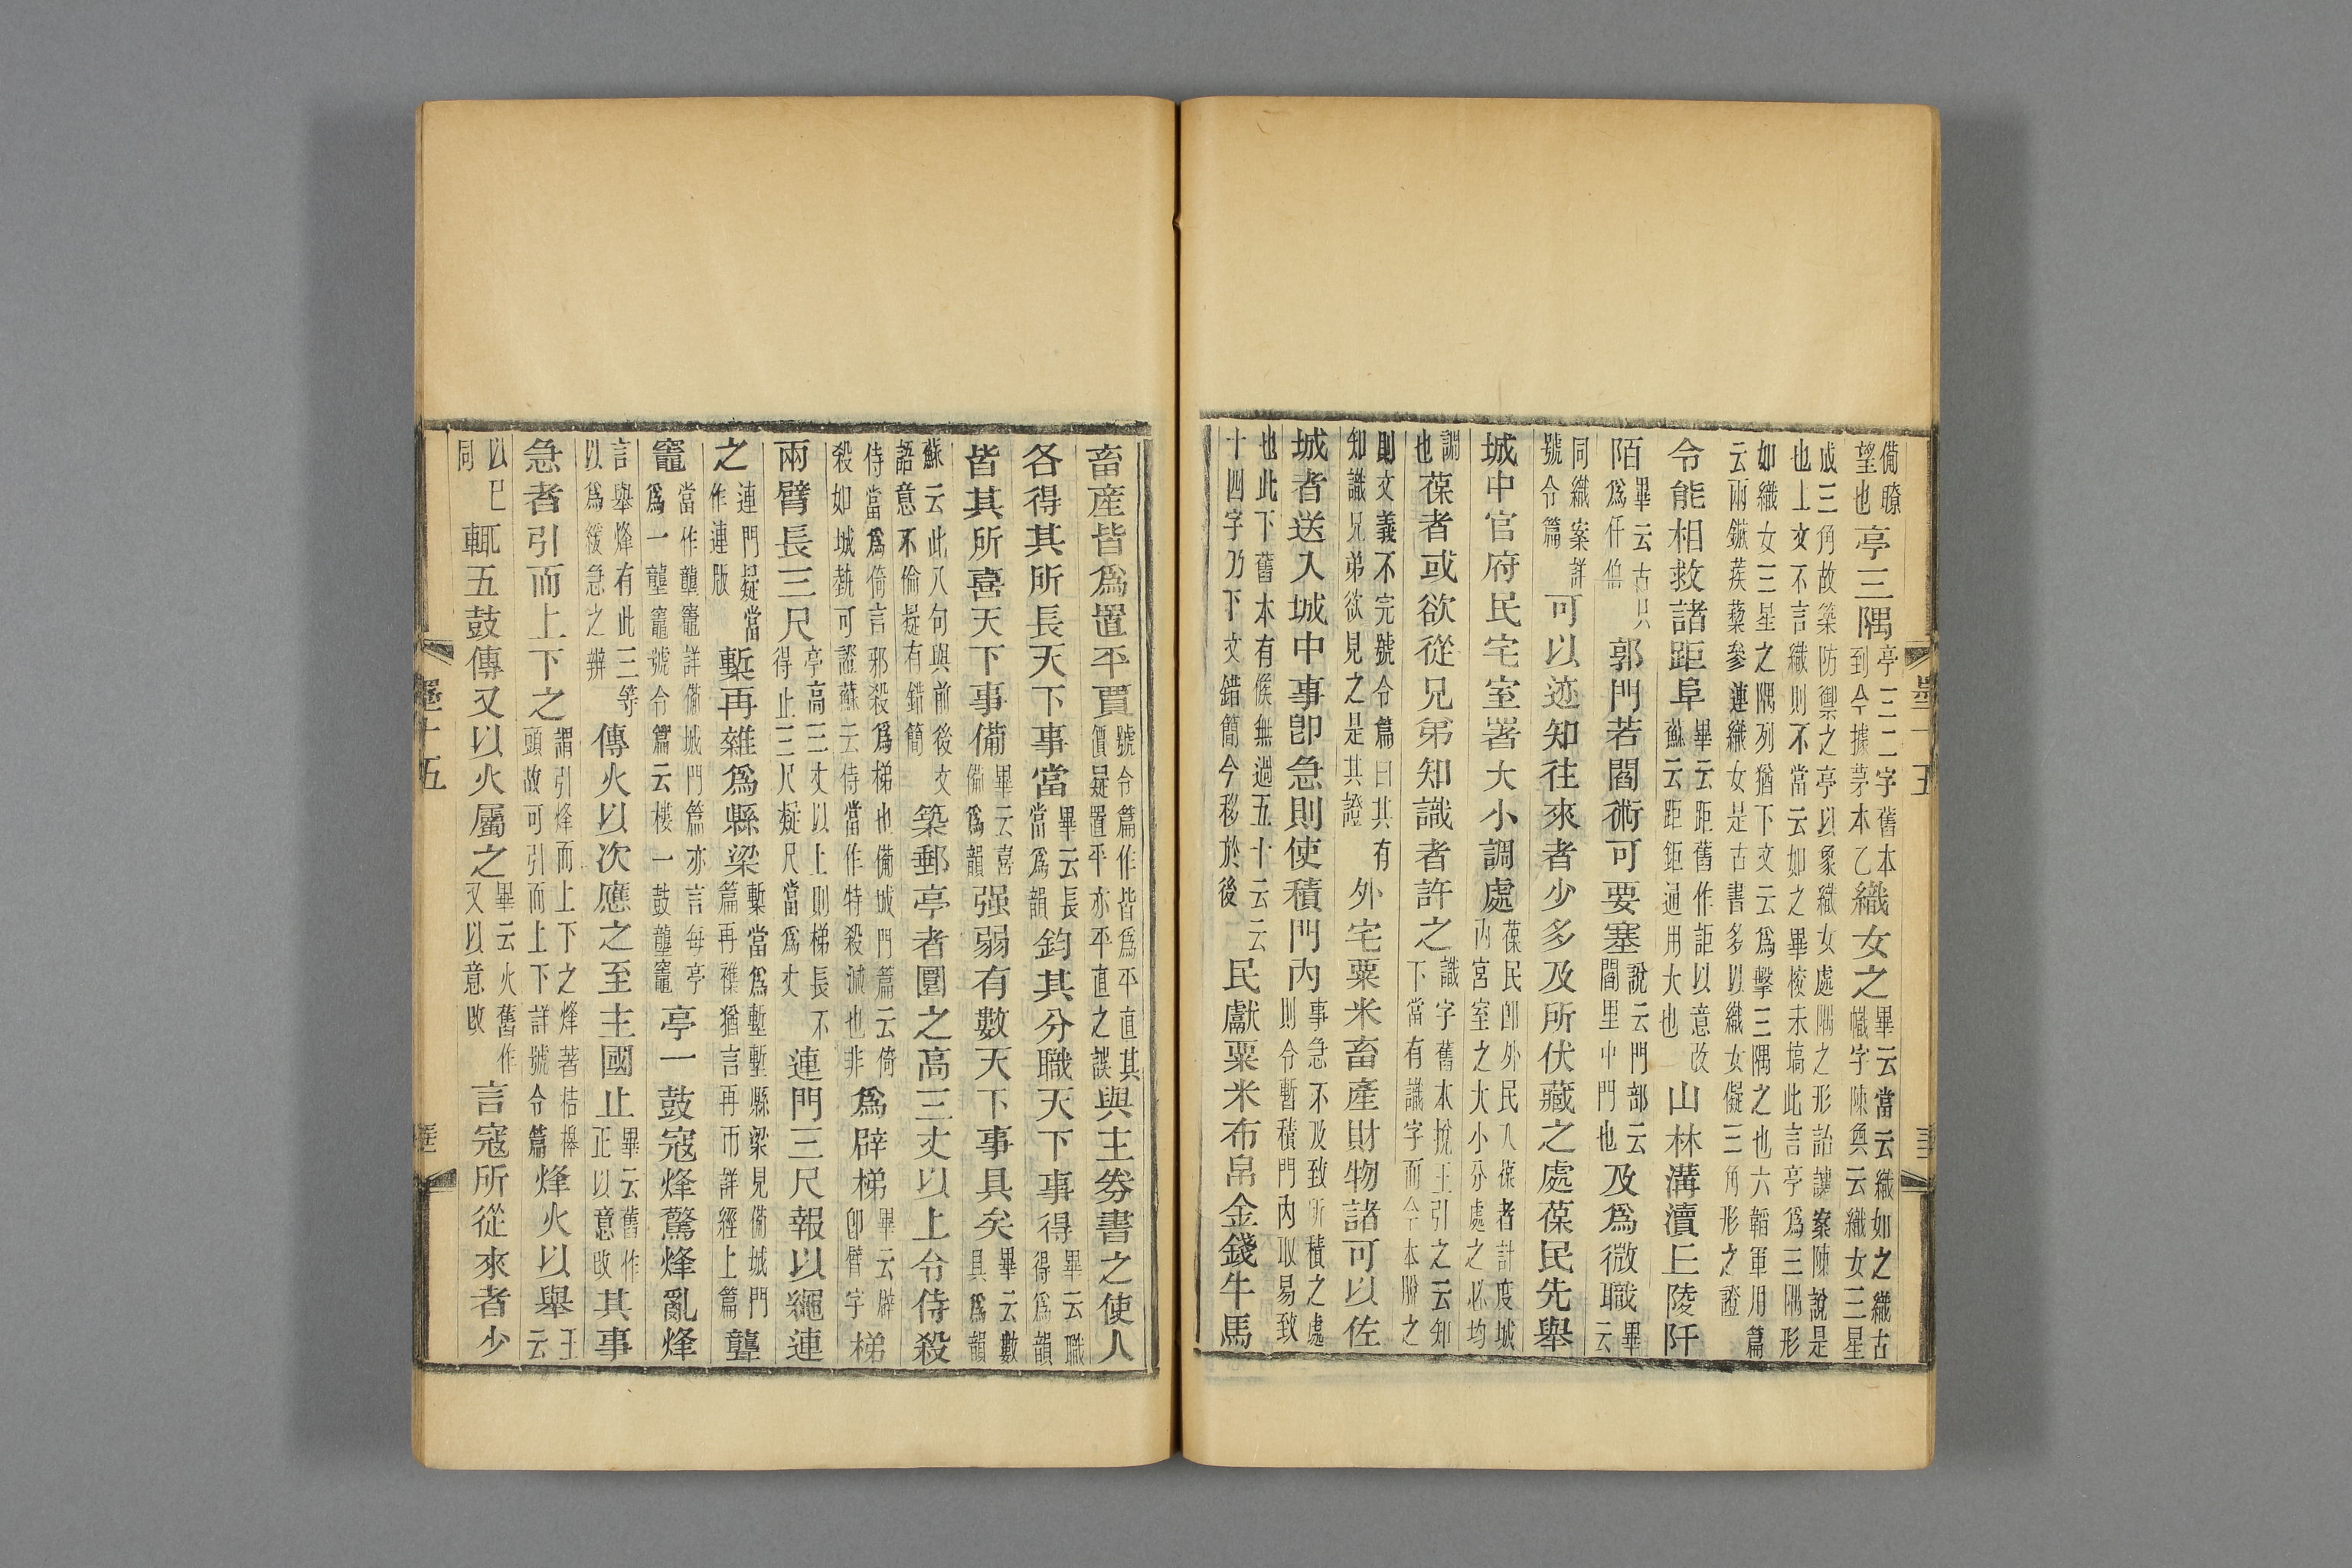 備暸望也亭三隅亭三二字舊本到今據茅本乙織女之畢云當云織如之織古幟字陳奐云織女三星
成三角故築防禦之亭以象織女處隅之形詒讓案陳說是也上文不言織則不當云如之畢校未塙此言亭爲三隅形
如織女三星之隅列猶下文云爲擊三隅之也六韜軍用篇云兩鏃蒺藜參連織女是古書多以織女儗三角形之證
令能相救諸距阜畢云距舊作詎以意改蘇云距鉅通用大也山林溝瀆丘陵阡
陌畢云古只爲仟伯郭門若閻術可要塞說云門部云閻里中門也及爲微職畢云
同織案詳號令篇可以迹知往來者少多及所伏藏之處葆民先舉
城中官府民宅室署大小調處葆民卽外民入葆者計度城內宮室之大小分處之必均
調也葆者或欲從兄弟知識者許之識字舊本挩王引之云知下當有識字而今本脫之
則文義不完號令篇曰其有知識兄弟欲見之是其證外宅粟米畜產財物諸可以佐
城者送入城中事卽急則使積門內事急不及致所積之處則令暫積門內取易致
也此下舊本有候無過五十云云十四字乃下文錯簡今移於後民獻粟米布帛金錢牛馬
墨十五
畜產皆爲置平賈號令篇作皆爲平直其價疑置平亦平直之誤與主券書之使人
各得其所長天下事當畢云長當爲韻鈞其分職天下事得畢云職得爲韻
皆其所喜天下事備畢云喜備爲韻强弱有數天下事具矣畢云數具爲韻
蘇云此八句與前後文語意不倫疑有錯簡築郵亭者圜之高三丈以上令侍殺
侍當爲倚言邪殺爲梯也備城門篇云倚殺如城埶可證蘇云侍當作特殺減也非爲辟梯畢云辟卽臂字梯
兩臂長三尺亭高三丈以上則梯長不得止三尺疑尺當爲丈連門三尺報以繩連
之連門疑當作連版槧再雜爲縣梁槧當爲塹塹縣梁見備城門篇再襍猶言再帀詳經上篇聾
竈當作壟竈詳備城門篇亦言每亭爲一壟竈號令篇云樓一鼓壟竈亭一鼓寇烽驚烽亂烽
言舉烽有此三等以爲緩急之辨傳火以次應之至主國止畢云舊作正以意改其事
急者引而上下之謂引烽而上下之烽著桔槔頭故可引而上下詳號令篇烽火以舉王云
以已同輒五鼓傳又以火屬之畢云火舊作又以意改言寇所從來者少
墨十五